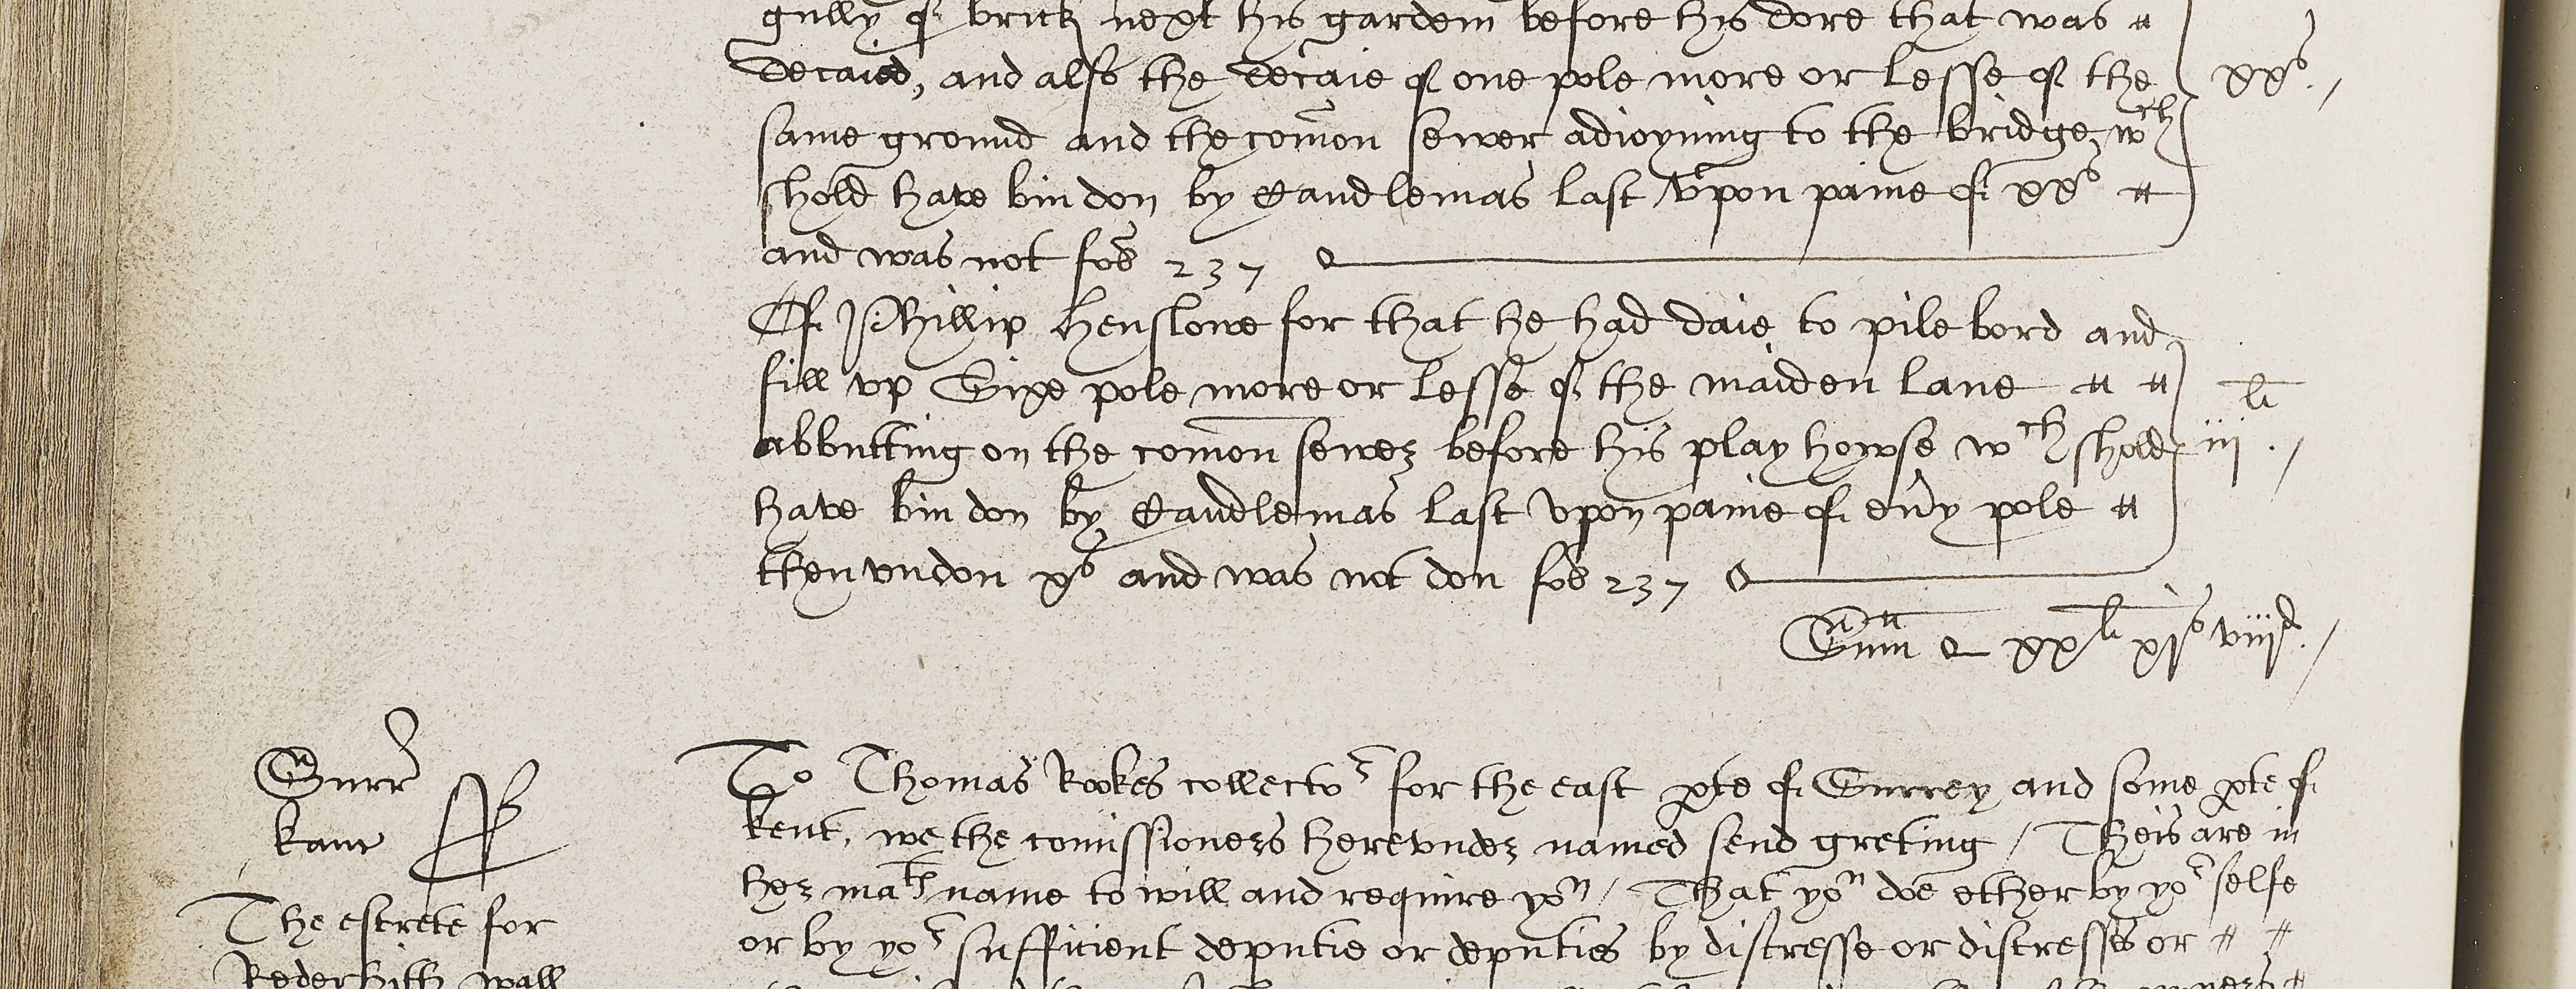 gully of brick next his garden before his dore that was
decaied, and also the decaie of one pole more or lesse of the xxs.
same ground and the comon sewer adioyning to the bridge wch
shold have bin don by Candlemas last vpon paine of xxs
and was not fod 237
Of Phillip Henslowe for that he had daie to pile bord and
fill vp Sixe pole more or lesse of the maiden lane
abbutting on the comon sewer before his play howse wch shold iij li.
have bin don by Candlemas last vpon paine of eu'y pole
then vndon xs and was not don fod 237
Sum xxli xjs viijd.
Surr
Kanc
To Thomas Rookes collector for the east pte of Surrey and some pte of
Kent, we the comissioners herevnder named send greting / Theis are in
her mats name to will and require you / That you doe ether by yor selfe
or by yor sufficient deputie or deputies by distresse or distresses or
The estrete for
Rederhith wall